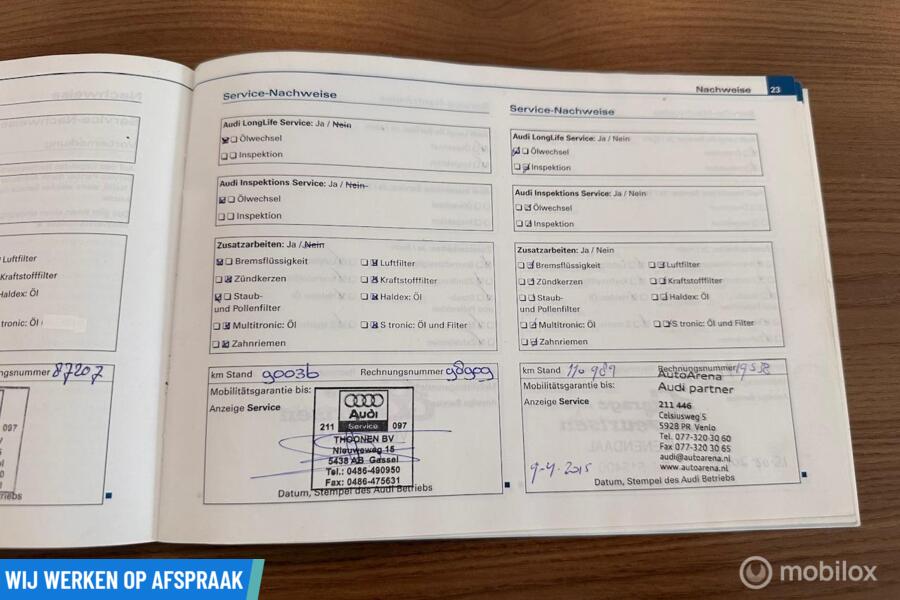 Nachweise
Luftfilter
Kraftstofffilter
Haldex: Öl
tronic: Öl
ngsnummer 87207
097
etriebs
Service-Nachweise
Audi LongLife Service: Ja / Nein
Ölwechsel
Inspektion
Audi Inspektions Service: Ja / Nein
Ölwechsel
Inspektion
Zusatzarbeiten: Ja / Nein
Bremsflüssigkeit
Luftfilter
Zündkerzen
Kraftstofffilter
Staub-
und Pollenfilter
Haldex: Öl
Multitronic: Öl
S tronic: Öl und Filter
Zahnriemen
km Stand 90036
Rechnungsnummer 98909
Mobilitätsgarantie bis:
Anzeige Service
Audi
211 Service 097
THOONEN BV
Nieuweweg 15
5438 AB Gassel
Tel.: 0486-490950
Fax: 0486-475631
Datum, Stempel des Audi Betriebs
Nachweise 23
Service-Nachweise
Audi LongLife Service: Ja / Nein
Ölwechsel
Inspektion
Audi Inspektions Service: Ja / Nein
Ölwechsel
Inspektion
Zusatzarbeiten: Ja / Nein
Bremsflüssigkeit
Luftfilter
Zündkerzen
Kraftstofffilter
Staub-
und Pollenfilter
Haldex: Öl
Multitronic: Öl
S tronic: Öl und Filter
Zahnriemen
km Stand 110989
Rechnungsnummer 19538
Mobilitätsgarantie bis:
Anzeige Service
AutoArena
Audi partner
211 446
Celsiusweg 5
5928 PR Venlo
Tel. 077-320 30 60
Fax 077-320 30 65
audi@autoarena.nl
www.autoarena.nl
9-4-2015
Datum, Stempel des Audi Betriebs
WIJ WERKEN OP AFSPRAAK
mobilox